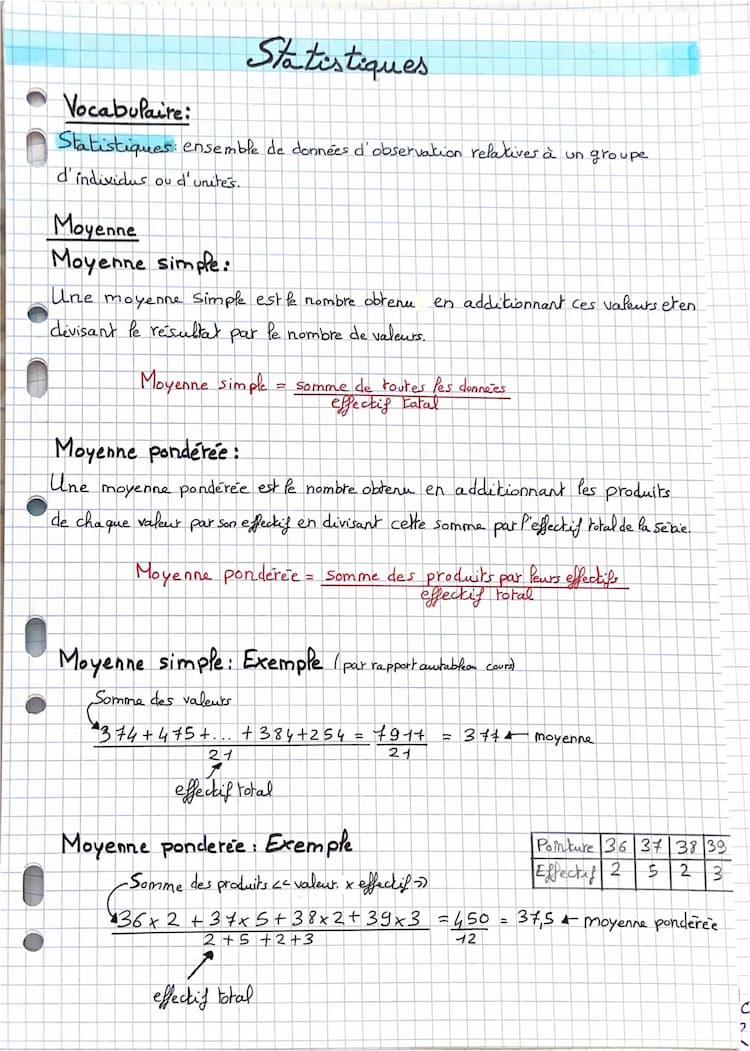 Statistiques
Vocabulaire:
Statistiques: ensemble de données d'observation relatives à un groupe
d'individus ou d'unités.
Moyenne
Moyenne simple:
Une moyenne simple est le nombre obtenu en additionnant ces valeurs et en
divisant le résultat par le nombre de valeurs.
Moyenne simple = somme de toutes les données
effectif total
Moyenne pondérée:
Une moyenne pondérée est le nombre obtenu en additionnant les produits
de chaque valeur par son effectif en divisant cette somme par l'effectif total de la série.
Moyenne ponderée = somme des produits par leurs effectifs
effectif total
Moyenne simple: Exemple (par rapport au tableau cours)
Somme des valeurs
374+475+...+384+254 = 7917 = 377 ← moyenne
21 21
effectif total
Moyenne ponderée: Exemple
Pointure 36 37 38 39
Effectif 2 5 2 3
Somme des produits << valeur x effectif >>
36 x 2 + 37 x 5 + 38 x 2 + 39 x 3 = 450 = 37,5 ← moyenne ponderée
2+5+2+3 12
effectif total